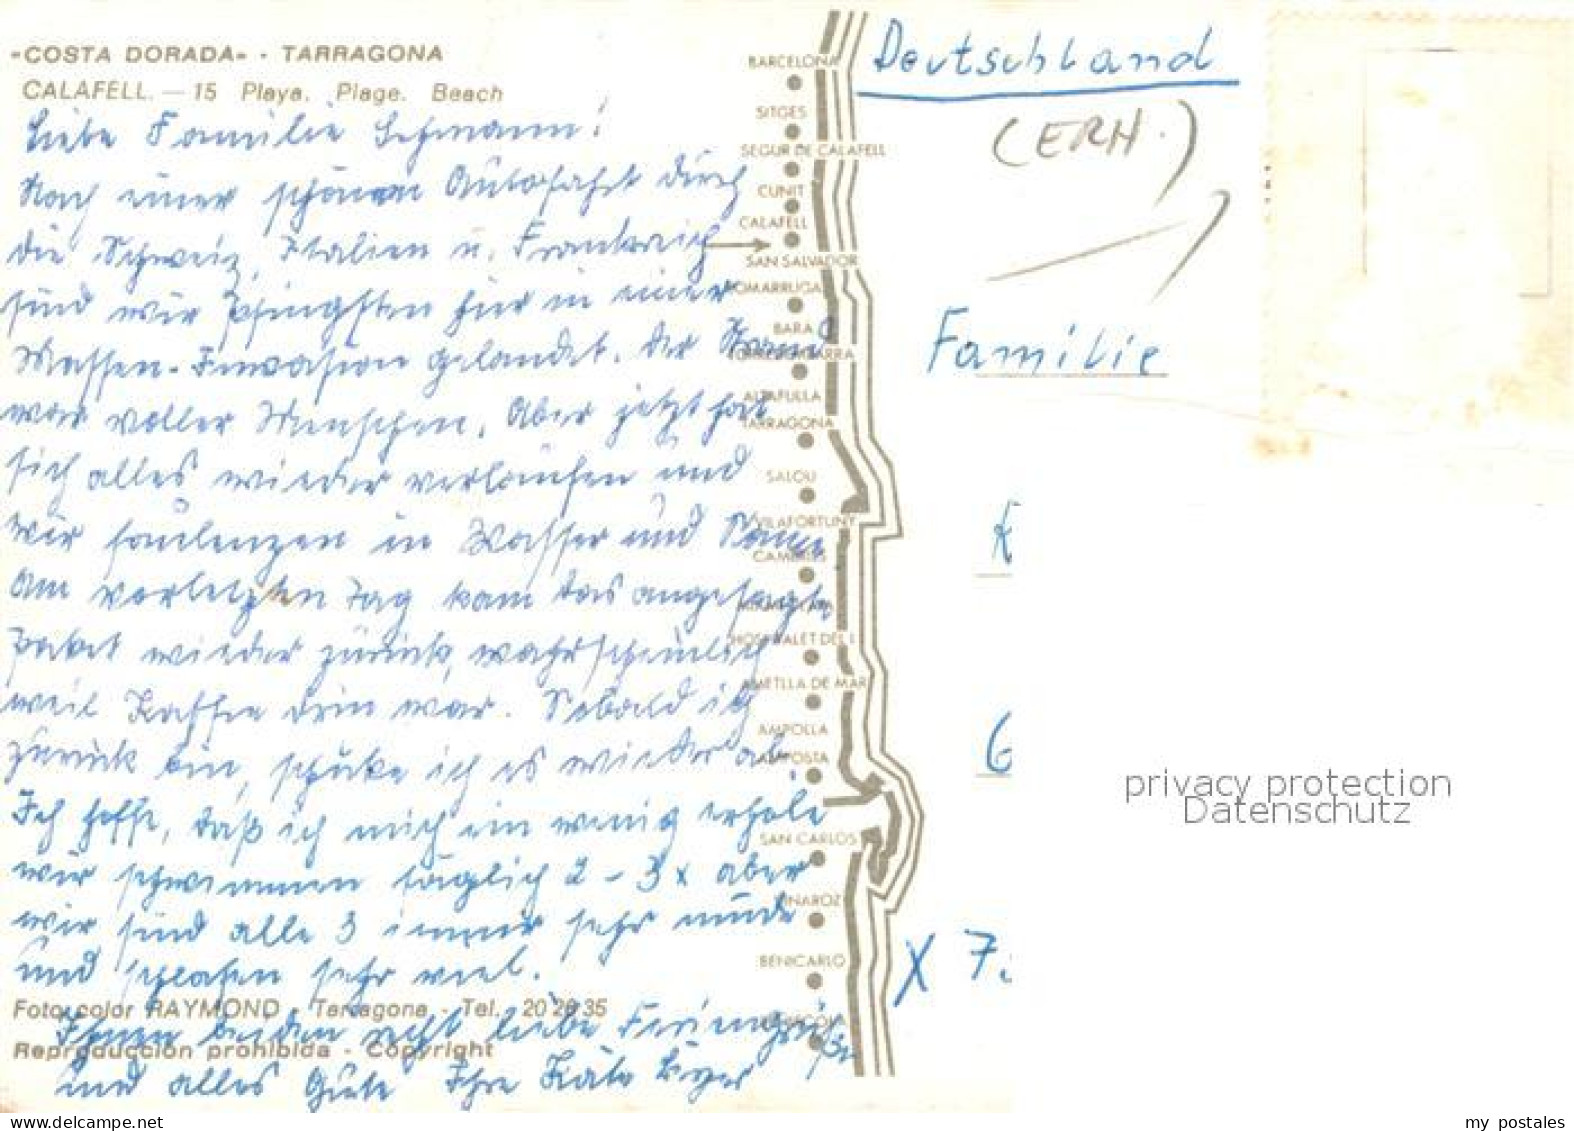 «COSTA DORADA» - TARRAGONA
CALAFELL. — 15 Playa. Plage. Beach
Liebe Familie Lehmann!
Nach einer schönen Autofahrt durch
die Schweiz, Italien u. Frankreich
sind wir Pfingsten hier in einer
Massen-Invasion gelandet. Der Strand
war voller Menschen. Aber jetzt hat
sich alles wieder verlaufen und
wir faulenzen in Wasser und Sonne
Am vorletzten Tag kam das angesagte
Paket wieder zurück, wahrscheinlich
weil Kaffee drin war. Sobald ich
zurück bin, schicke ich es wieder ab
Ich hoffe, daß ich mich ein wenig erhole
wir schwimmen täglich 2 - 3 x aber
wir sind alle 3 immer sehr müde
und schlafen sehr viel.
Foto color RAYMOND - Tarragona - Tel. 20 28 35
Ihnen beiden recht liebe Feriengrüße
Reproducción prohibida - Copyright
und alles Gute Ihre Käte
BARCELONA
SITGES
SEGUR DE CALAFELL
CUNIT
CALAFELL
SAN SALVADOR
COMARRUGA
BARA
TORREDEMBARRA
ALTAFULLA
TARRAGONA
SALOU
VILAFORTUNY
CAMBRILS
HOSPITALET DEL I
AMETLLA DE MAR
AMPOLLA
AMPOSTA
SAN CARLOS
VINAROZ
BENICARLO
PEÑISCOLA
Deutschland
(ERH.)
Familie
K
G
X 7.
privacy protection
Datenschutz
my postales